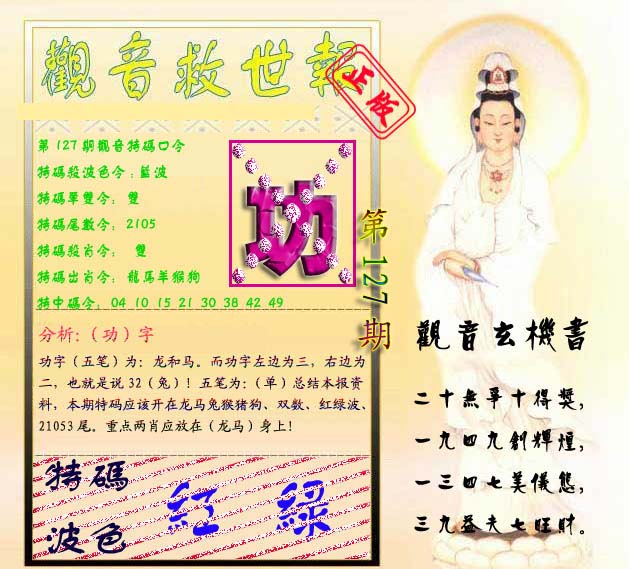 觀音救世報
正版
第127期觀音特碼口令
特碼殺波色令：藍波
特碼單雙令： 雙
特碼尾數令：2105
特碼殺肖令： 雙
特碼出肖令：龍馬羊猴狗
特中碼令：04 10 15 21 30 38 42 49
功
第127期
分析：（功）字
功字（五笔）为：龙和马。而功字左边为三，右边为
二，也就是说 32（兔）！五笔为：（单）总结本报资
料，本期特码应该开在龙马兔猴猪狗、双数、红绿波、
21053 尾。重点两肖应放在（龙马）身上！
特碼
波色
紅 綠
觀音玄機書
二十無爭十得獎，
一九四九創輝煌，
一三四七美儀態，
三九益夫七旺財。